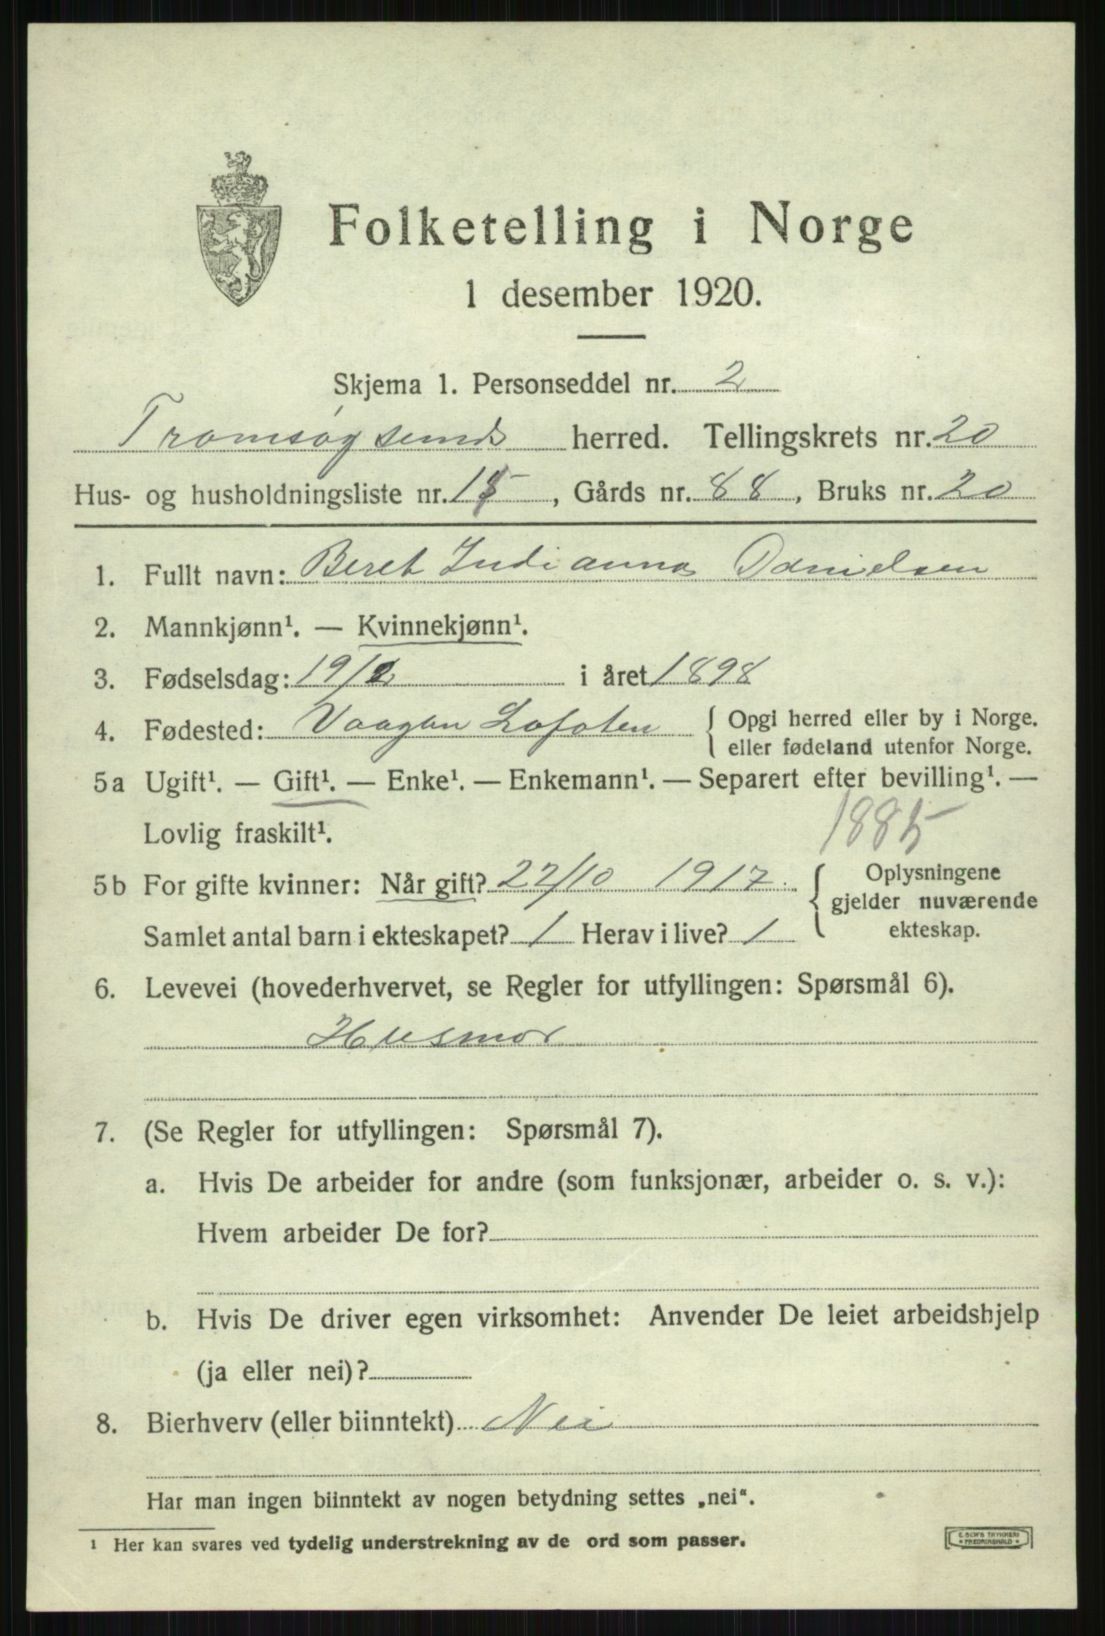 Folketelling i Norge
1 desember 1920.
Skjema 1. Personseddel nr. 2
Tromsøysund herred. Tellingskrets nr. 20
Hus- og husholdningsliste nr. 15, Gårds nr. 88, Bruks nr. 20
1. Fullt navn: Beret Indianna Danielsen
2. Mannkjønn¹. — Kvinnekjønn¹.
3. Fødselsdag: 19/2 i året 1898
4. Fødested: Vaagan Lofoten { Opgi herred eller by i Norge.
eller fødeland utenfor Norge.
5a Ugift¹. — Gift¹. — Enke¹. — Enkemann¹. — Separert efter bevilling¹. —
Lovlig fraskilt¹. 1885
5b For gifte kvinner: Når gift? 22/10 1917. { Oplysningene
gjelder nuværende
Samlet antal barn i ekteskapet? 1 Herav i live? 1 ekteskap.
6. Levevei (hovederhvervet, se Regler for utfyllingen: Spørsmål 6).
Husmor
7. (Se Regler for utfyllingen: Spørsmål 7).
a. Hvis De arbeider for andre (som funksjonær, arbeider o. s. v.):
Hvem arbeider De for?
b. Hvis De driver egen virksomhet: Anvender De leiet arbeidshjelp
(ja eller nei)?
8. Bierhverv (eller biinntekt) Nei
Har man ingen biinntekt av nogen betydning settes „nei“.
¹ Her kan svares ved tydelig understrekning av de ord som passer.